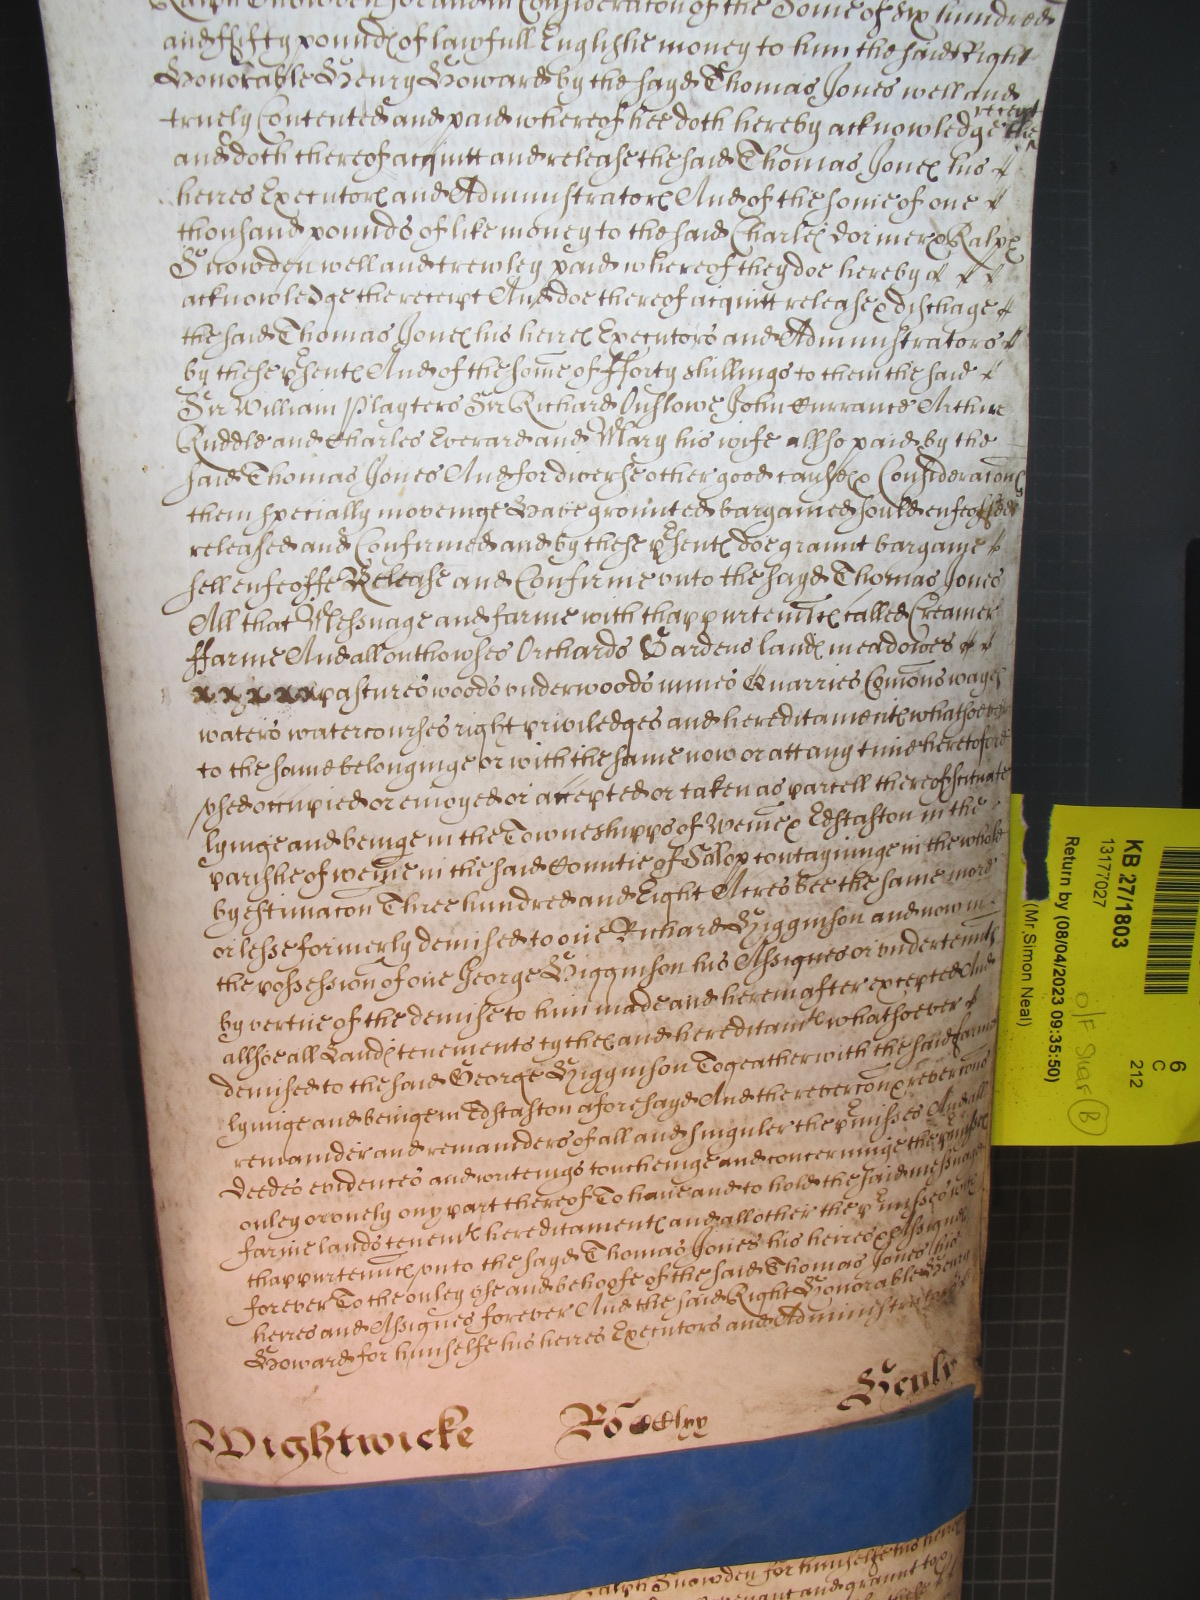 Ralph Snowden for and in Consideracon of the Some of Six hundred
and ffifty pounds of lawfull Englishe money to him the said Right
Honorable Henry Howard by the sayd Thomas Jones well and
truely Contented and paid whereof hee doth hereby acknowledge the receipt
and doth thereof acquitt and release the said Thomas Jones his
heires Executors and Administrators And of the some of one
thousand pounds of like money to the said Charles Dormer & Ralph
Snowden well and trewley paid whereof they doe hereby
acknowledge the receipt And doe thereof acquitt release & dischage
the said Thomas Jones his heires Executors and Administrators
by these psents And of the some of fforty shillings to them the said
Sir William Playters Sir Richard Onslowe John Currance Arthure
Ruddle and Charles Everard and Mary his wife allso paid by the
said Thomas Jones And for diverse other good causes & Consideracons
them specially moveinge Have graunted bargained sould enfeoffed
released and Confirmed and by these psents doe graunt bargaine
sell enfeoffe Release and Confirme unto the sayd Thomas Jones
All that Messuage and farme with thappurtenncs called Creamer
ffarme And all outhowses Orchards Gardens lands meadowes
pastures woods underwoods mines Quarries Comons wayes
waters watercourses right priviledges and hereditaments whatsoever
to the same belonginge or with the same now or att any time heretofore
used occupied or enioyed or accepted or taken as parcell thereof scituate
lyinge and beinge in the Towneshipps of Weme & Edstaston in the
parishe of Weme in the said Countie of Sallop contayninge in the whole
by estimacon Three hundred and Eight Acres bee the same more
or lesse formerly demised to one Richard Higginson and now in
the possession of one George Higginson his Assignes or undertennts
by vertue of the demise to him made and hereinafter excepted And
allsoe all Lands tenements tythes and hereditamts whatsoever
demised to the said George Higginson Togeather with the said farme
lyinge and beinge in Edstaston aforesayd And the revercon & revercons
remainder and remainders of all and singuler the pmisses And all
Deedes evidences and writeings toucheinge and concerninge the pmisses
onley or onely any part thereof To have and to hold the said messuage
farme lands tenemts hereditaments and all other the pmisses with
thappurtenncs unto the sayd Thomas Jones his heires & Assignes
forever To the onley use and behoofe of the said Thomas Jones his
heires and Assignes forever And the said Right Honorable Henry
Howard for himselfe his heires Executors and Administrators
Wightwicke
Henly
Ralph Snowden for himselfe his heires
and graunt to
KB 27/1803
13177027
Return by (08/04/2023 09:35:50)
(Mr.Simon Neal)
6
C
212
B